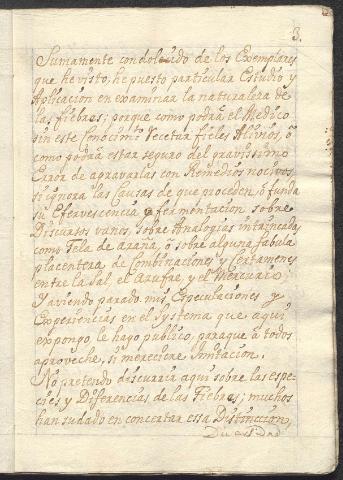 3.
Sumamente condolecido de los Exemplares
que he visto, he puesto particular Estudio y
Aplicacion en examinar la naturaleza de
las fiebres; porque como podrá el Medico
sin este Conocimto. Recetar fieles Alivios, ô
como podrá estar seguro del gravissimo
Error de agravarlas con Remedios nocivos,
si ignora las Causas de que proceden, ô funda
su Efervescencia ô fermentacion sobre
Discursos vanos, sobre Analogias intrincadas
como Tela de Araña, ô sobre alguna fabula
placentera de Combinaciones y Certamenes
entre la Sal, el Azufre, y el Mercurio;
Y aviendo parado mis Especulaciones y
Experiencias en el Systema que aqui
expongo, le hago publico, paraque â todos
aproveche, si mereciere Imitacion.
No pretendo discurrir aqui sobre las espe-
cies y Diferencias de las Fiebres; muchos
han sudado en concertar essa Distincion,